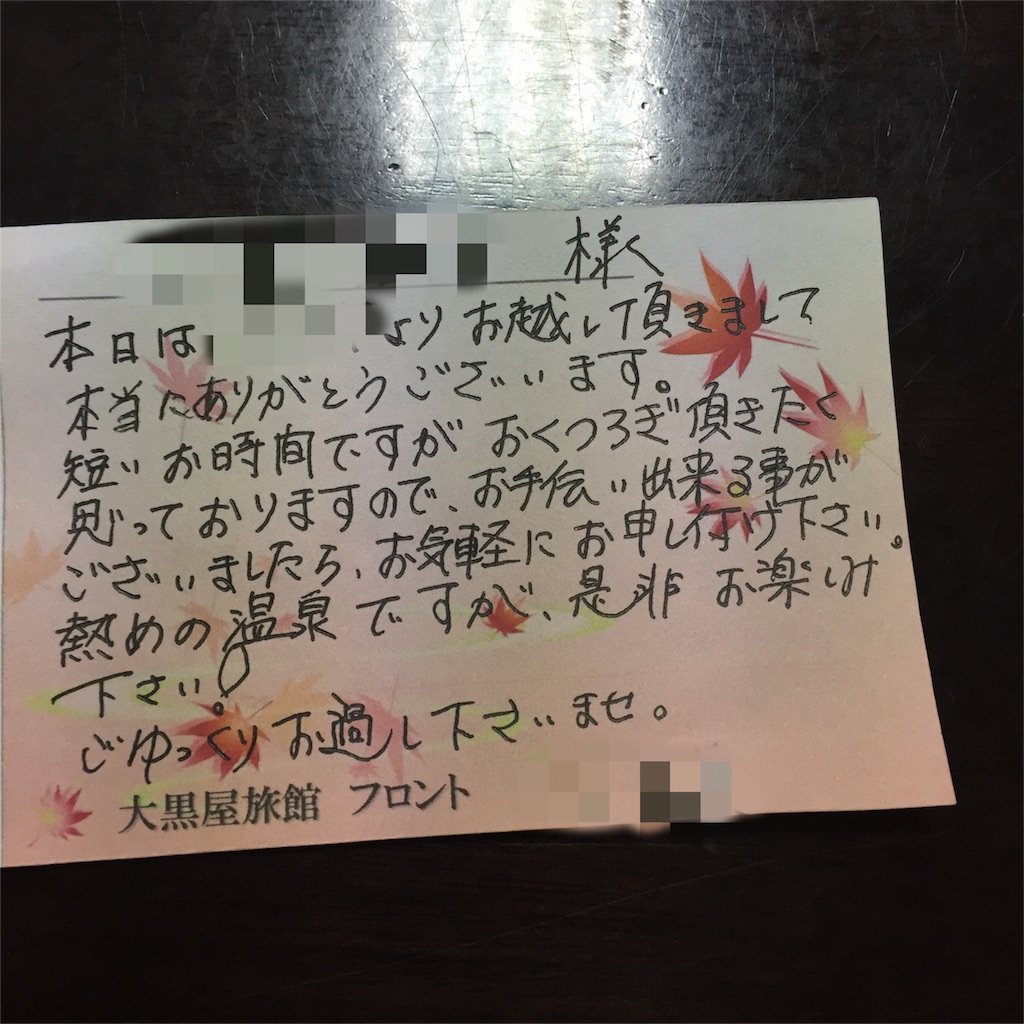 様
本日は より お越し頂きまして
本当にありがとうございます。
短いお時間ですが おくつろぎ頂きたく
思っておりますので、お手伝い出来る事が
ございましたら、お気軽にお申し付け下さい。
熱めの温泉ですが、是非 お楽しみ
下さい。
ごゆっくりお過し下さいませ。
大黒屋旅館 フロント